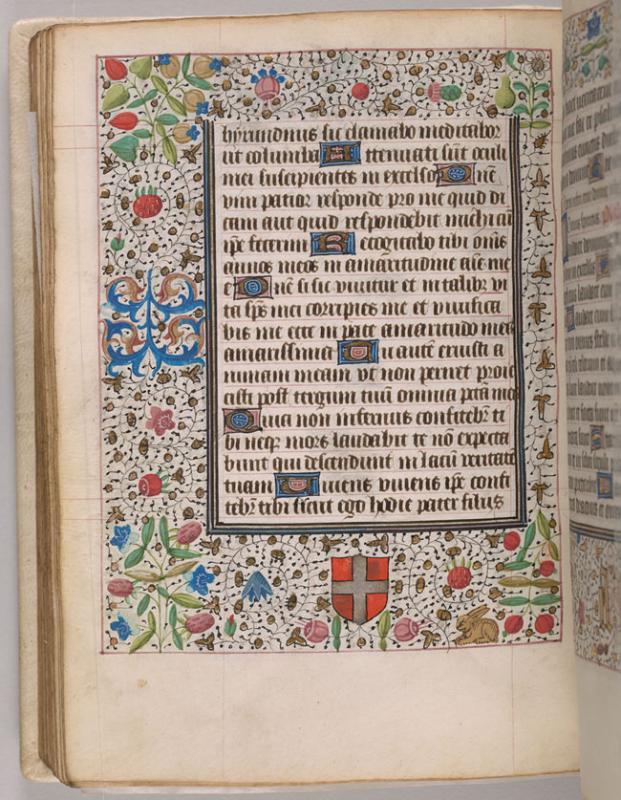 hyrundinis sic clamabo meditabor
ut columba Attenuati sūt oculi
mei suscipientes in excelso Dñe
vim patior responde pro me quid di
cam aut quid respondebit michi cū
ip̄e fecerim Recogitabo tibi om̄s
annos meos in amaritudine aīe me
e Dñe si sic vivitur et in talibꝫ vi
ta sp̄s mei corripies me et vivifica
bis me ecce in pace amaritudo mea
amarissima Tu autē eruisti a
nimam meam ut non periret proie
cisti post tergum tuū omnia pctā mea
Quia non infernus confitebr̄ ti
bi neqꝫ mors laudabit te nō expecta
bunt qui descendunt in lacū veritatē
tuam Vivens vivens ip̄e confi
tebr̄ tibi sicut ego hodie pater filiis